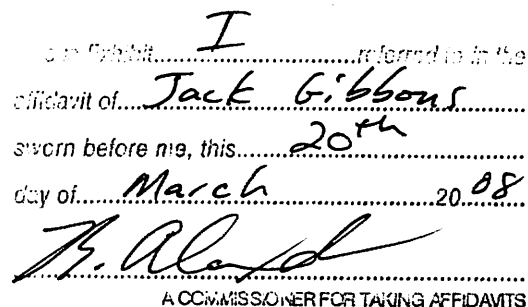 Exhibit I referred to in the
affidavit of Jack Gibbons
sworn before me, this 20th
day of March 2008
A COMMISSIONER FOR TAKING AFFIDAVITS